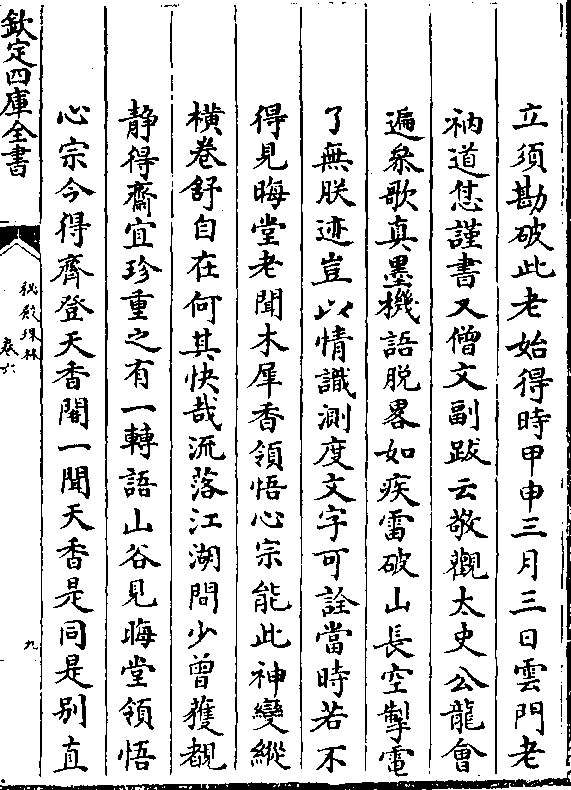 立須勘破此老始得時甲申三月三日雲門老
衲道恁謹書又僧文副跋云敬觀太史公龍會
遍叅歌真墨機語脱畧如疾雷破山長空掣電
了無朕迹豈以情識測度文字可詮當時若不
得見晦堂老聞木犀香領悟心宗能此神變縱
横卷舒自在何其快哉流落江湖間少曾獲覩
静得齋宜珍重之有一轉語山谷見晦堂領悟
心宗今得齊登天香閣一聞天香是同是别直
欽定四庫全書
秘殿珠林
卷六
九